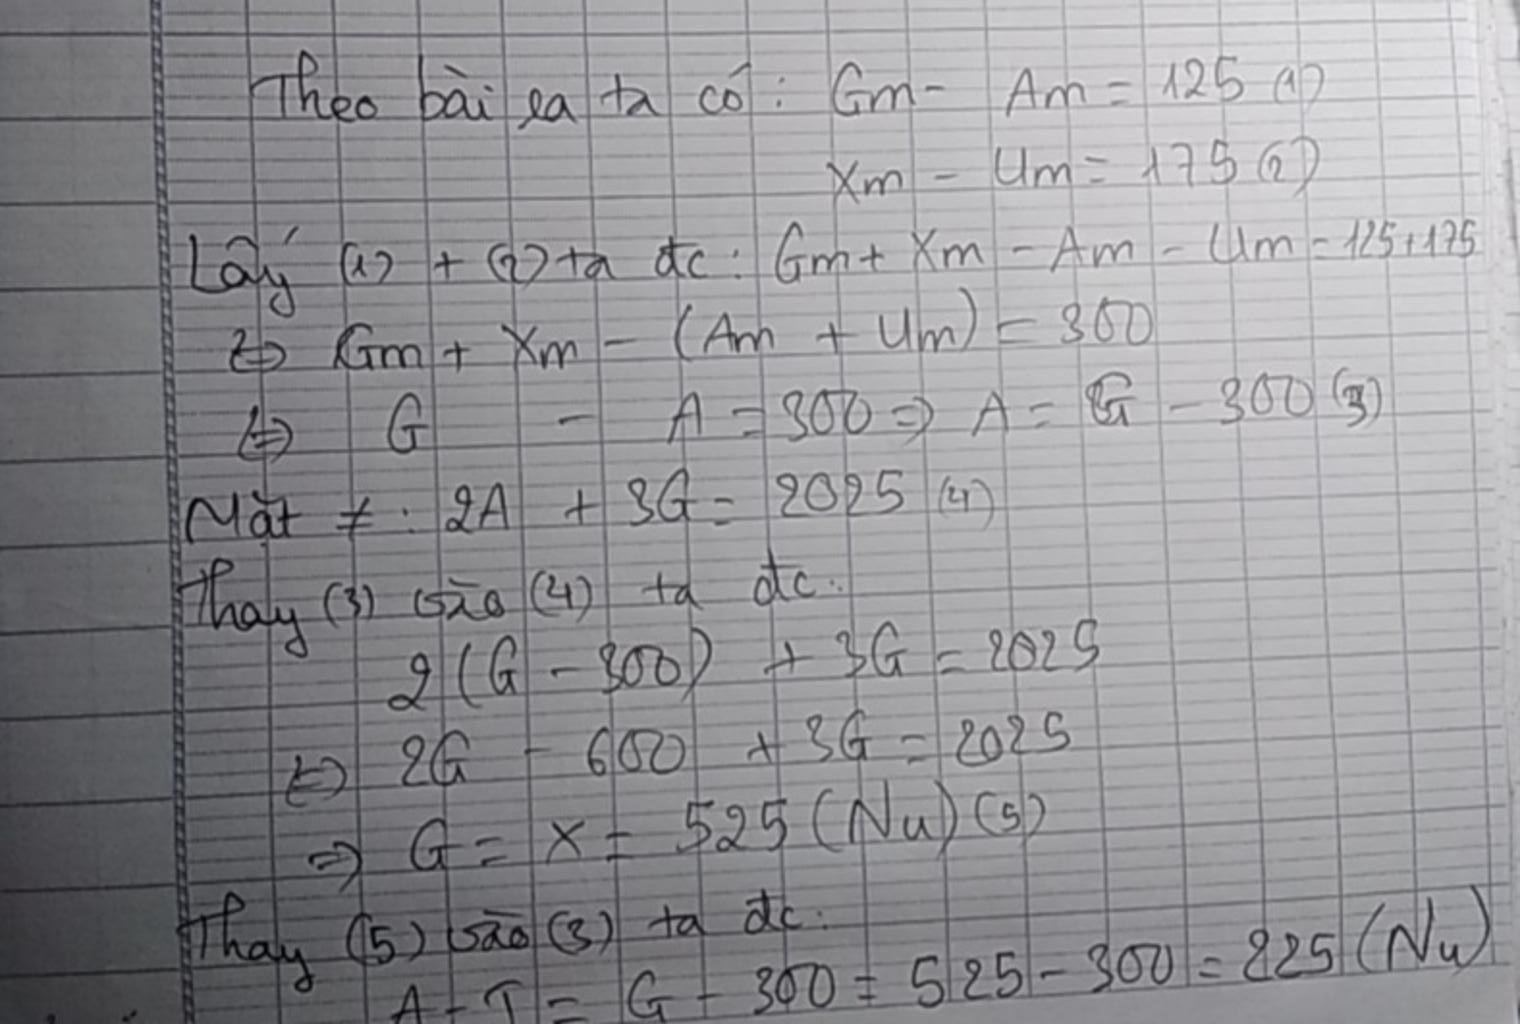 Theo bài ra ta có: Gm - Am = 125 (1)
Xm - Um = 175 (2)
Lấy (1) + (2) ta đc: Gm + Xm - Am - Um = 125+175
⇔ Gm + Xm - (Am + Um) = 300
⇔ G - A = 300 ⇒ A = G - 300 (3)
Mặt ≠: 2A + 3G = 2025 (4)
Thay (3) vào (4) ta đc:
2(G - 300) + 3G = 2025
⇔ 2G - 600 + 3G = 2025
⇒ G = X = 525 (Nu) (5)
Thay (5) vào (3) ta đc:
A = T = G - 300 = 525 - 300 = 225 (Nu)